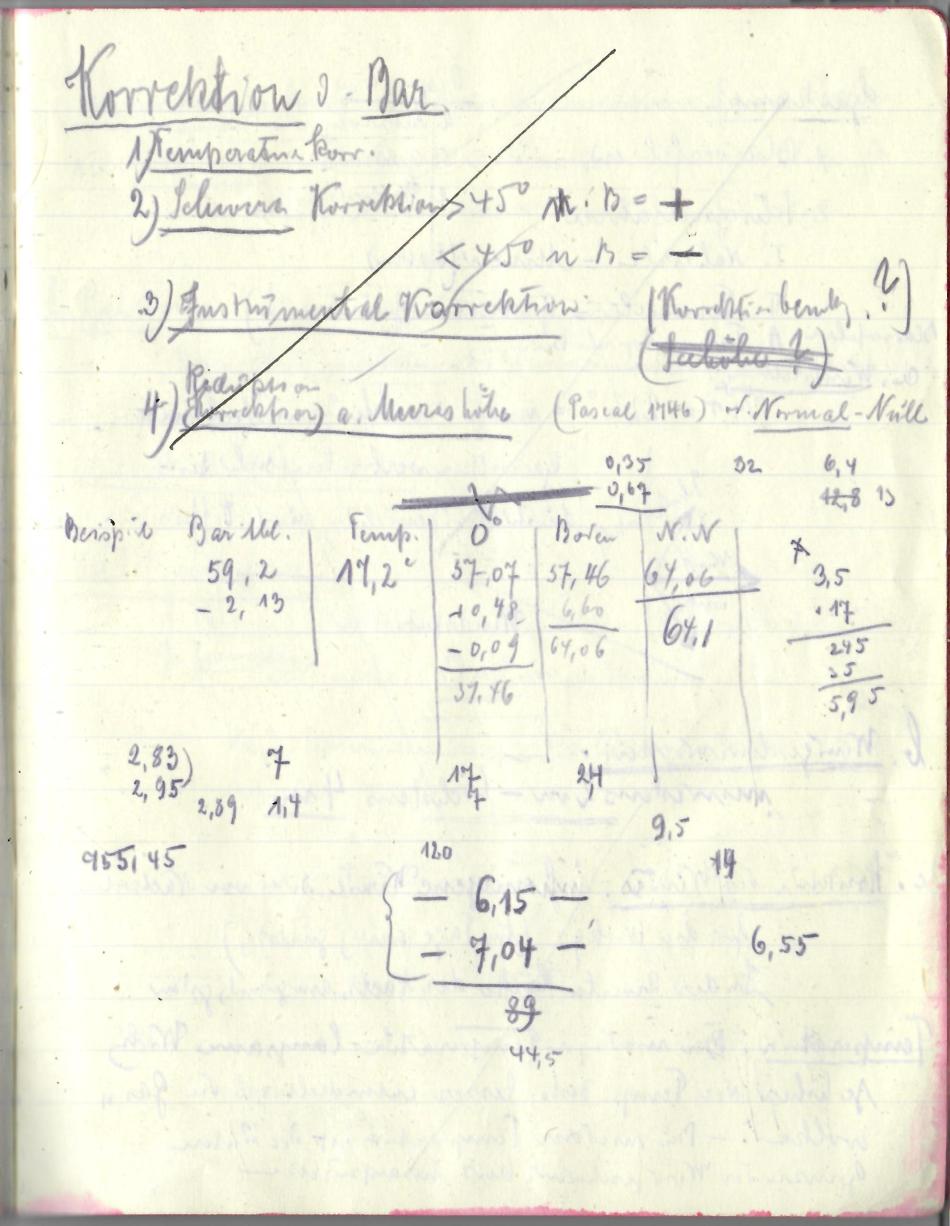 Korrektion d. Bar.
1) Temperatur korr.
2) Schwere Korrektion > 45° n. B = +
< 45° n B = −
3) Instrumental Korrektion (Korrektion ?)
(Seehöhe ?)
Reduktion
4) (Korrektion) a. Meereshöhe (Pascal 1746) od. Normal-Null
0,35 32 6,4
0,67 12,8 13
Beispiel Bar Temp. 0° Boden N.N
59,2 17,2° 57,07 57,46 64,06 3,5
− 2,13 +0,48 6,60 64,1 · 17
− 0,09 64,06 245
57,46 35
5,95
2,83) 7 17 24
2,95 7
2,89 1,4
9,5
955,45 120 14
− 6,15 −
− 7,04 − 6,55
89
44,5